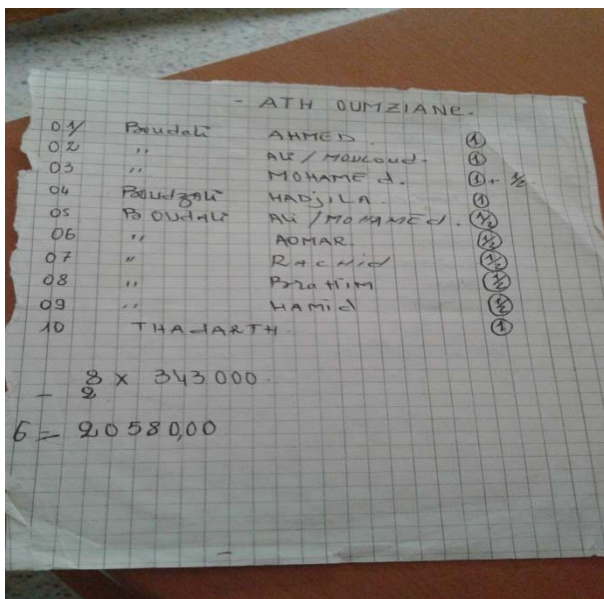 - ATH OUMZIANE.
01/ Boudali AHMED. 1
02 " Ali / Mouloud. 1
03 " MOHAMEd. 1 + 1/2
04 Boudzali HADJILA. 1
05 BOUdali Ali / MOHAMEd. 1/2
06 " AOMAR 1/2
07 " RAchid 1/2
08 " BraHiM 1/2
09 " HAMid 1/2
10 THAdARTH. 1
8 x 343000.
- 2
6 = 2058000